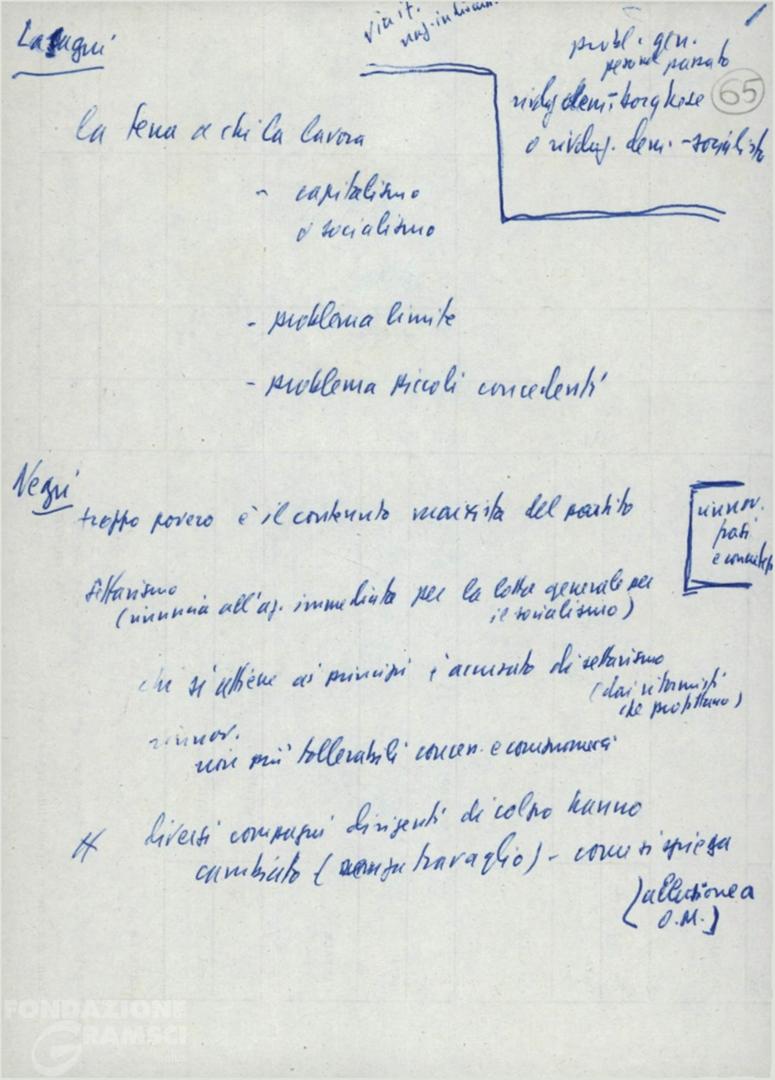 via it.
probl. gen.
person. passato
65
rivoluz. dem.-borghese
o rivoluz. dem.-socialista
la terra a chi la lavora
- capitalismo
o socialismo
- problema limite
- problema piccoli concedenti
Negri
troppo povero è il contenuto marxista del partito
rinnov.
settarismo
(rinuncia all'az. immediata per la lotta generale per
il socialismo)
chi si attiene ai principi è accusato di settarismo
(dai riformisti
che profittano)
rinnov.
non più tollerabili concez. economic
diversi compagni dirigenti di colpo hanno
cambiato (senza travaglio) - come si spiega
(allusione a
O.M.)
FONDAZIONE
GRAMSCI